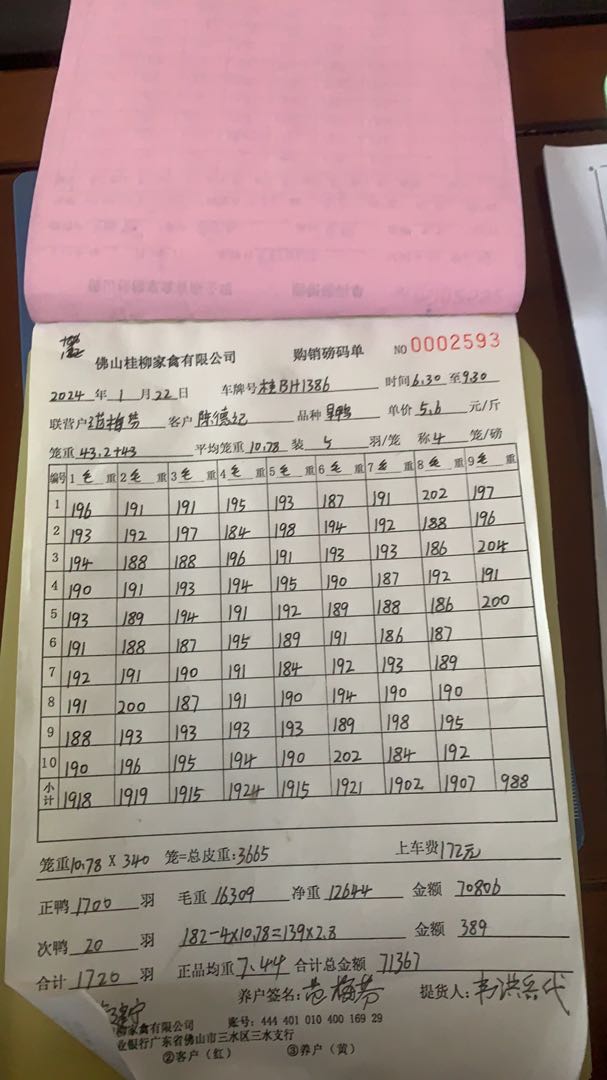 佛山桂柳家禽有限公司 购销磅码单 NO 0002593
2024 年 1 月 22 日 车牌号 桂BH1386 时间 6.30 至 9.30
联营户 范梅芳 客户 陈德纪 品种 单价 5.6 元/斤
笼重 43.2+43 平均笼重 10.78 装 5 羽/笼 称 4 笼/磅
编号 1 毛 重 2 毛 重 3 毛 重 4 毛 重 5 毛 重 6 毛 重 7 毛 重 8 毛 重 9 毛 重
1 196 191 191 195 193 187 191 202 197
2 193 192 197 184 198 194 192 188 196
3 194 188 188 196 191 193 193 186 204
4 190 191 193 194 195 190 187 192 191
5 193 189 194 191 192 189 188 186 200
6 191 188 187 195 189 191 186 187
7 192 191 190 191 184 192 193 189
8 191 200 187 191 190 194 190 190
9 188 193 193 193 193 189 198 195
10 190 196 195 194 190 202 184 192
小计 1918 1919 1915 1924 1915 1921 1902 1907 988
笼重 10.78 × 340 笼=总皮重: 3665 上车费 172元
正鸭 1700 羽 毛重 16309 净重 12644 金额 70806
次鸭 20 羽 182-4×10.78=139×2.8 金额 389
合计 1720 羽 正品均重 7.44 合计总金额 71367
养户签名: 范梅芳 提货人: 韦洪兵代
家禽有限公司 账号: 444 401 010 400 169 29
业银行广东省佛山市三水区三水支行
②客户（红） ③养户（黄）